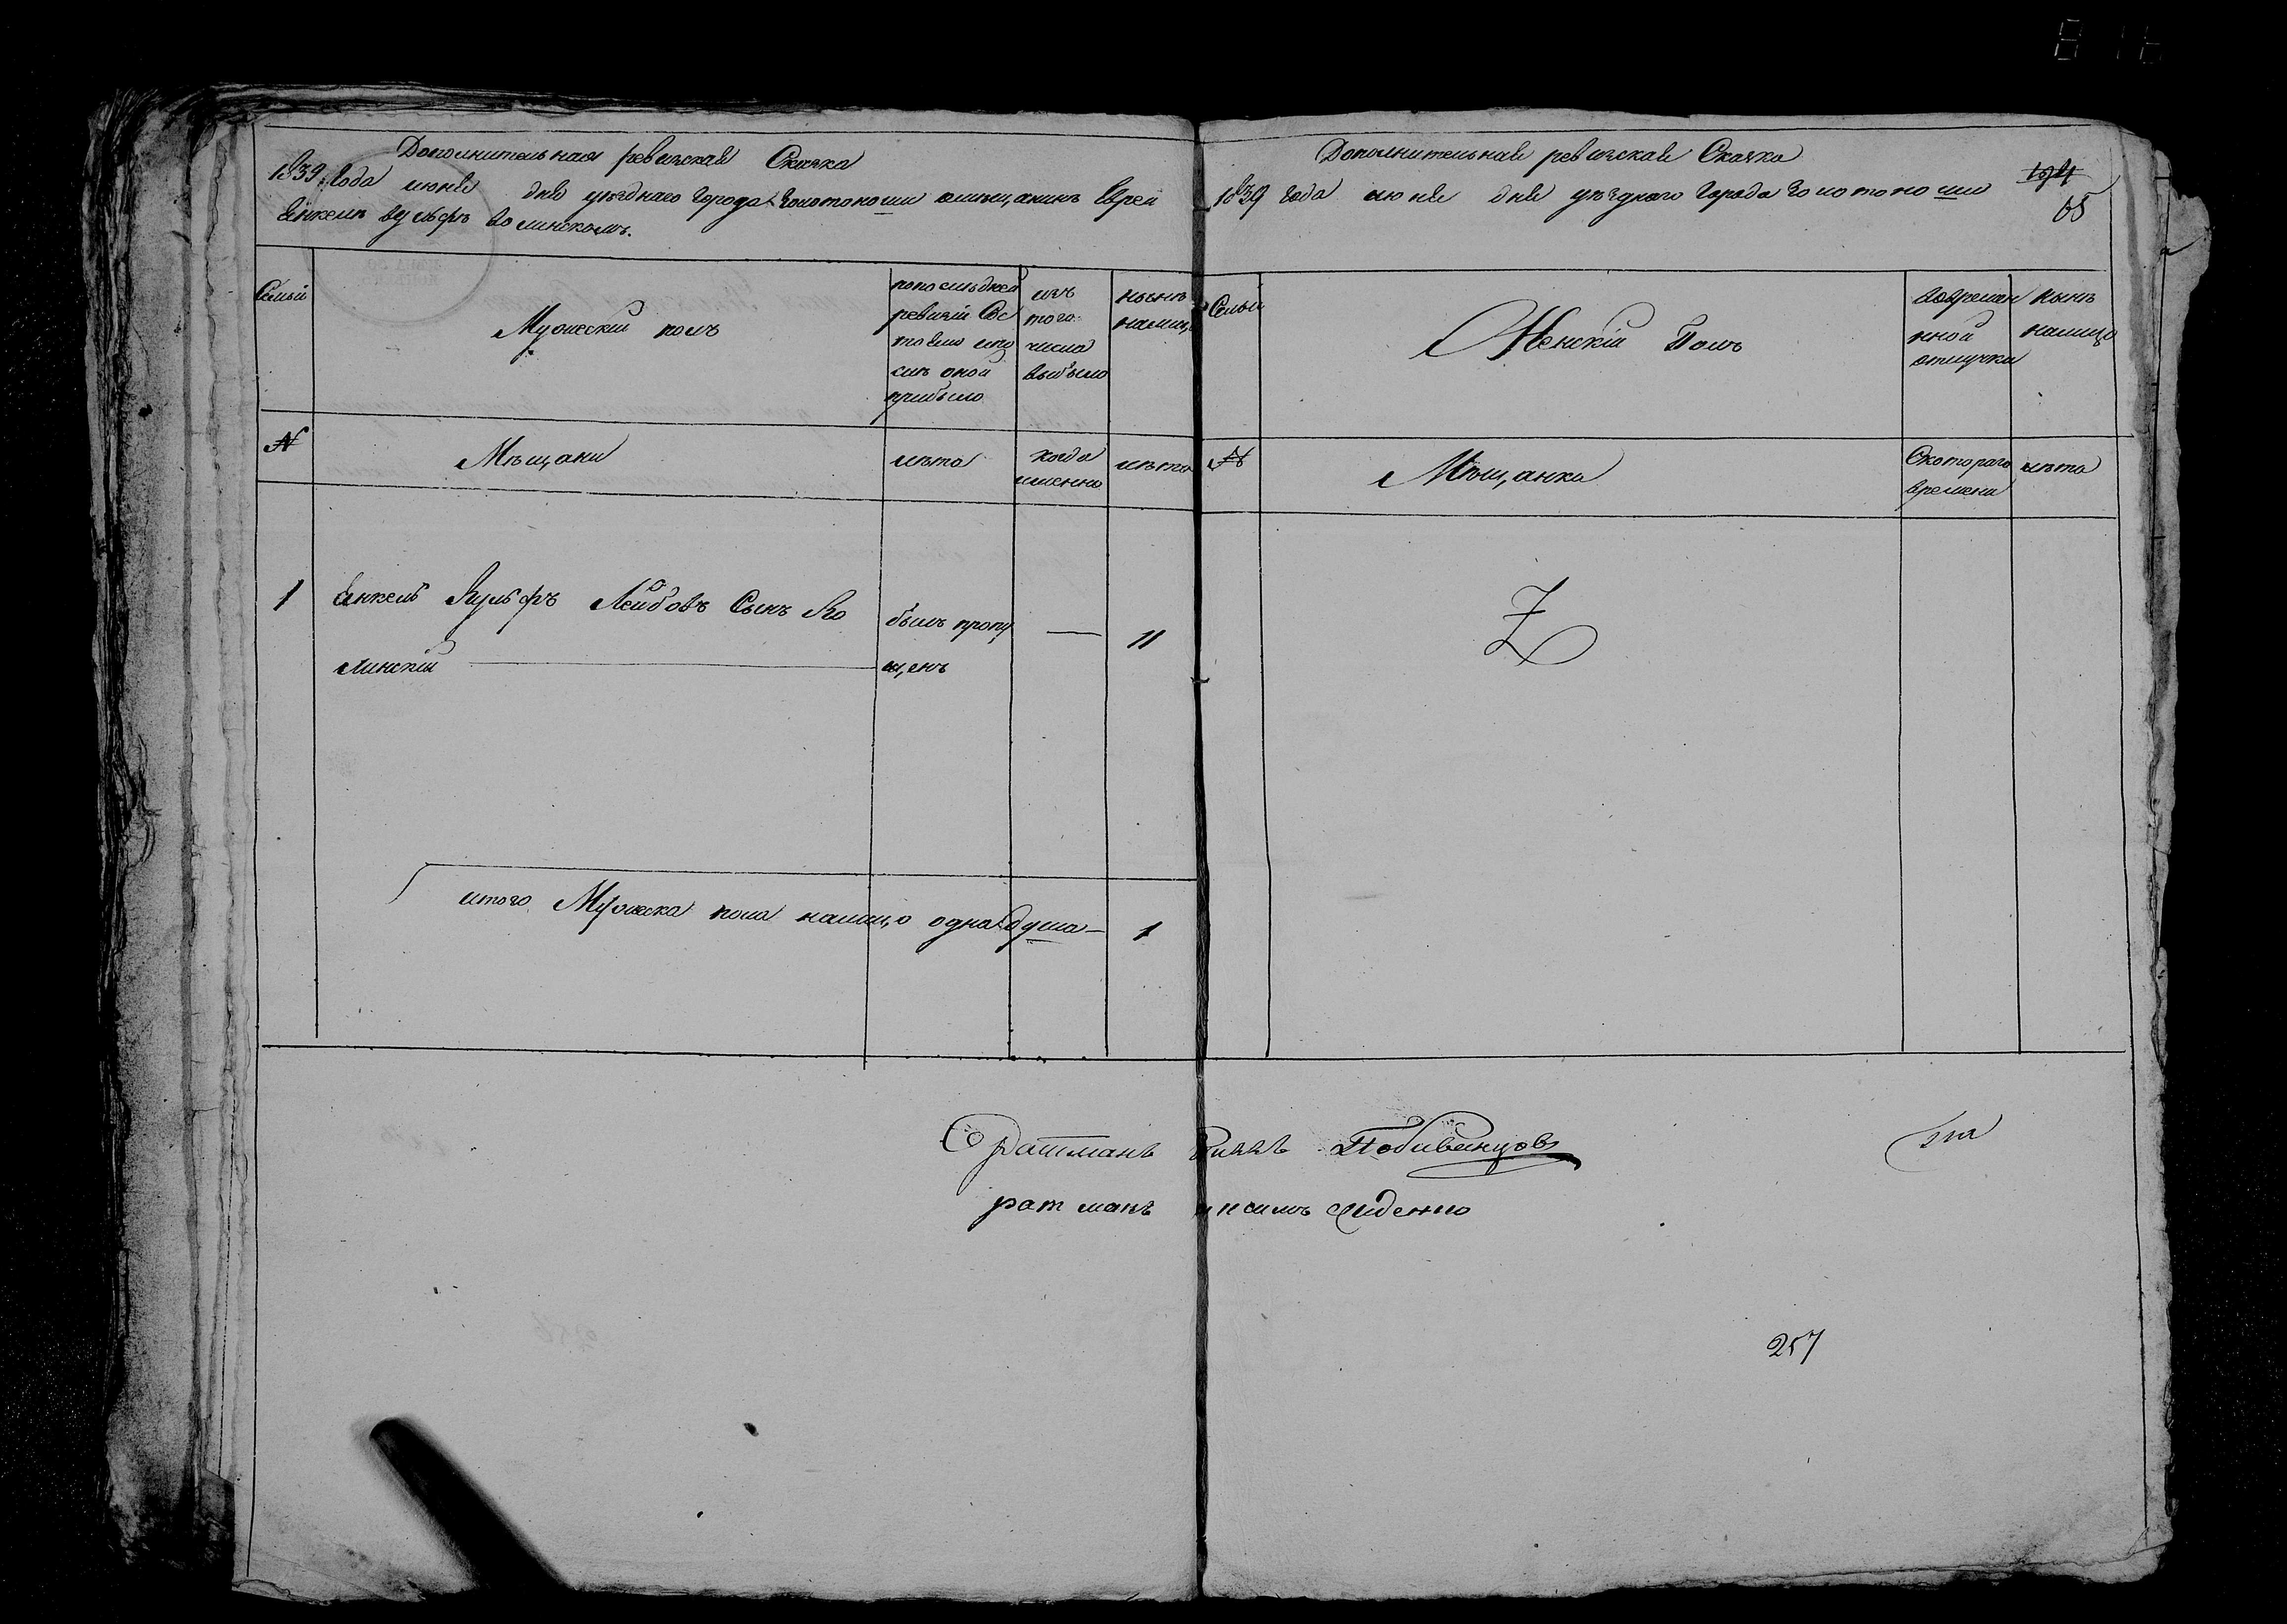 Дополнительная ревизская Сказка
1839 года июня дня уезднаго города Золотоноши о мещанинъ Еврей
Янкель Вульфъ Волинскомъ.
Семьи
Мужескій полъ
попоследней
ревизіи Сос
тояло ипо
сле оной
прибыло
изъ
того
числа
выбыло
ныне
налицо
№
Мещани
лета
когда
именно
лета
1
Янкель Вульфъ Лейбовъ Сынъ Во
линскій
былъ пропу
щенъ
—
11
итого Мужеска пола налицо одна душа — 1
Дополнительная ревизская Сказка
1839 года июня дня уезднаго города Золотоноши
65
Семьи
Женскій Полъ
вовремен
ной
отлучки
ныне
налицо
№
Мещанки
Скотораго
времени
лета
Ратманъ Побивенцовъ
ратманъ
257